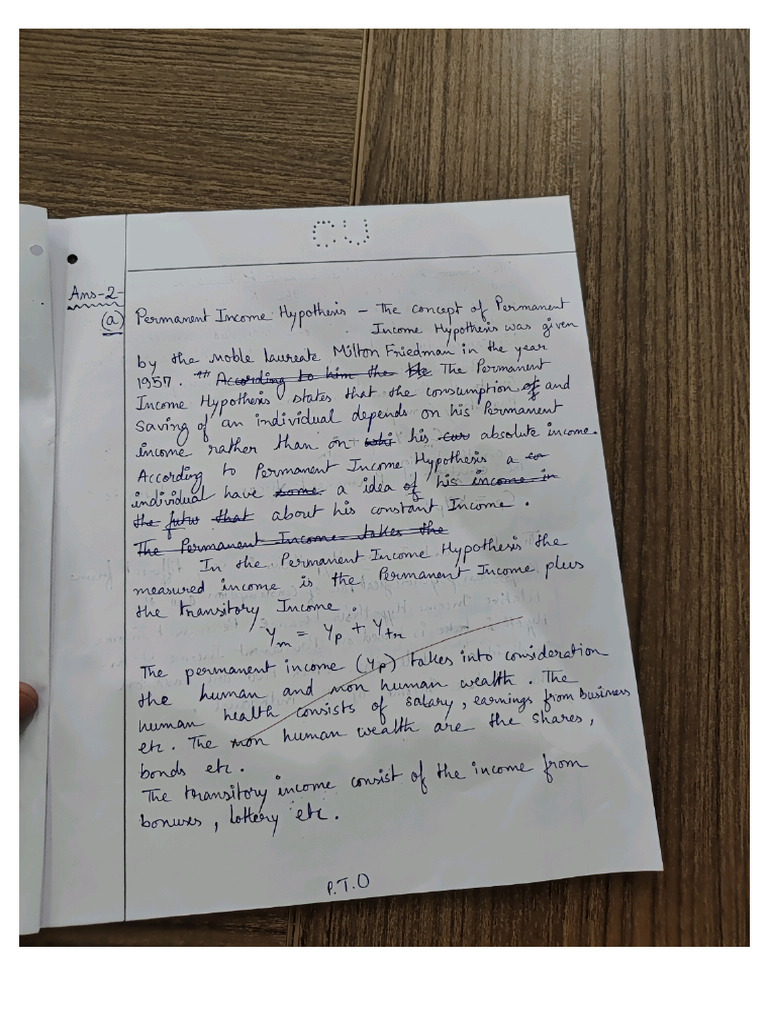 CU
Ans-2-
(a) Permanent Income Hypothesis - The concept of Permanent
Income Hypothesis was given
by the Noble laureate Milton Friedman in the year
1957. According to him the The Permanent
Income Hypothesis states that the consumption of and
Saving of an individual depends on his Permanent
income rather than on his Cur absolute income.
According to Permanent Income Hypothesis a
individual have some a idea of his income in
the futur that about his constant Income.
The Permanent Income takes the
In the Permanent Income Hypothesis the
measured income is the Permanent Income plus
the transitory Income.
Ym = Yp + Ytr
The permanent income (Yp) takes into consideration
the human and non human wealth. The
human health consists of salary, earnings from business
etc. The non human wealth are the shares,
bonds etc.
The transitory income consist of the income from
bonuses, lottery etc.
P.T.O